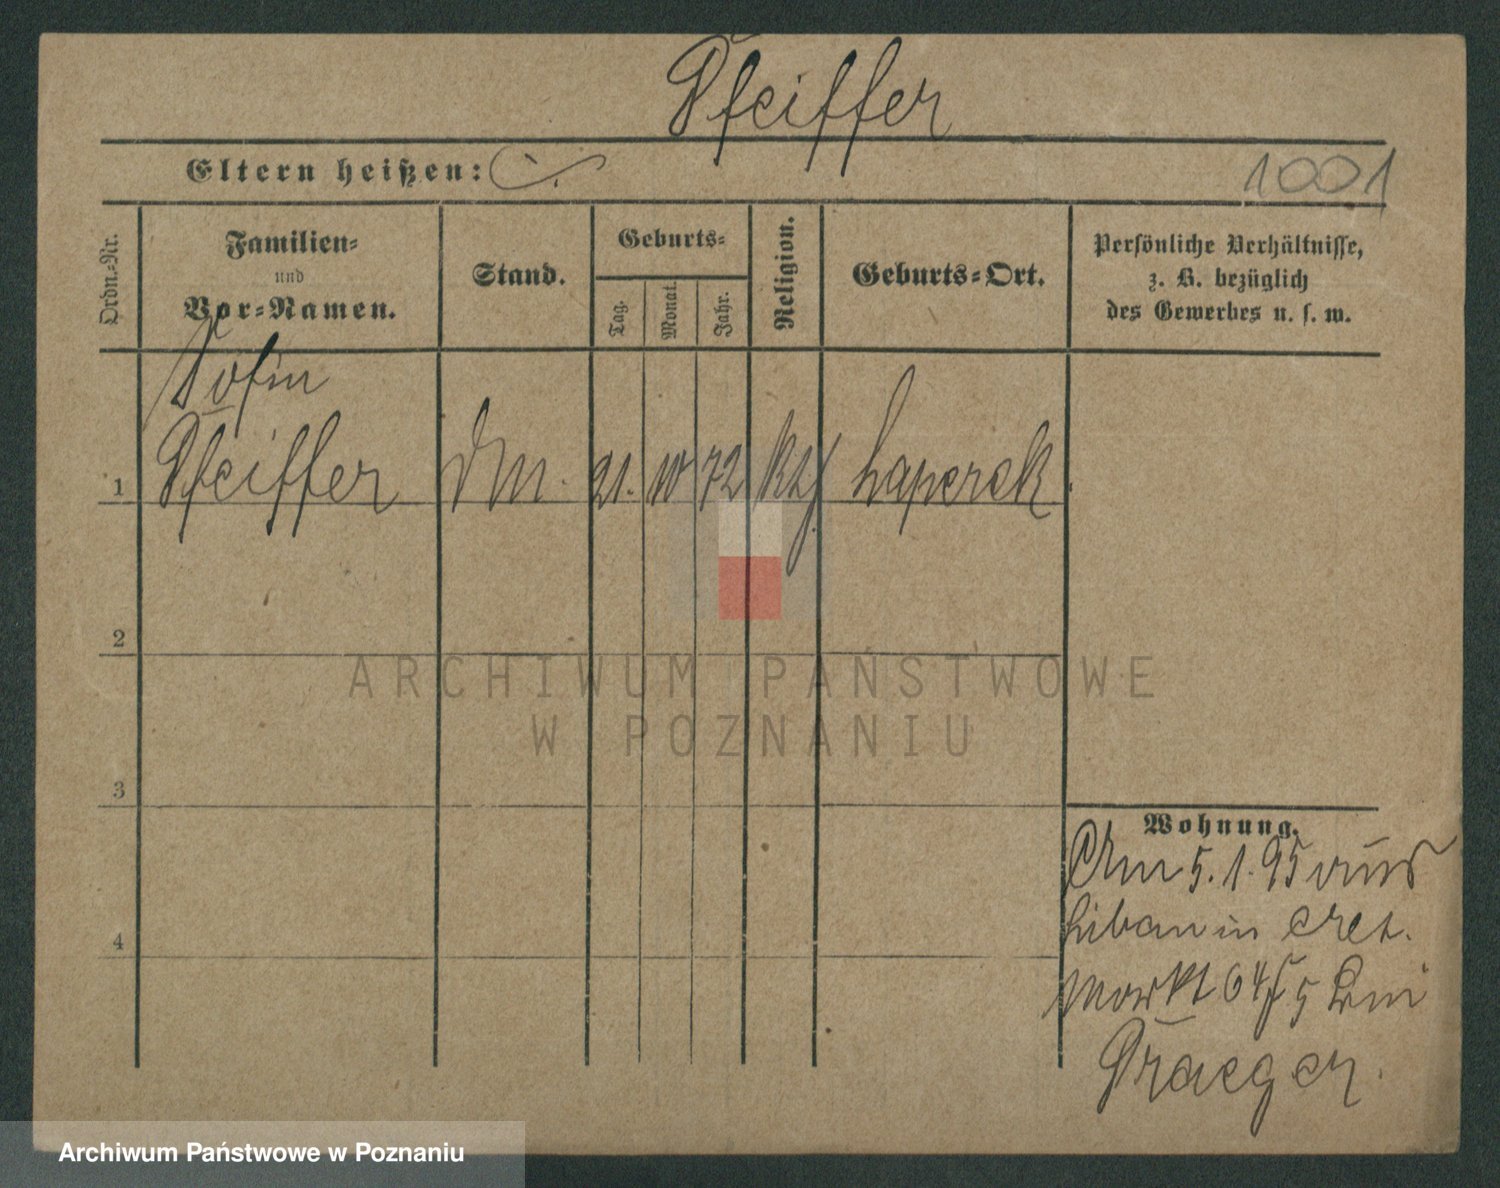 Pfeiffer
Eltern heißen:
1001
Ordn.=Nr.
Familien=
und
Vor=Namen.
Stand.
Geburts=
Tag.
Monat.
Jahr.
Religion.
Geburts=Ort.
Persönliche Verhältnisse,
z. B. bezüglich
des Gewerbes u. s. w.
1
Pfeiffer
DM.
21. 10 72
kth
Laperek
2
3
4
Wohnung.
Am 5.1.95 aus
Liban in Alt.
Markt 64/5 bei
Draeger.
ARCHIWUM PAŃSTWOWE
W POZNANIU
Archiwum Państwowe w Poznaniu